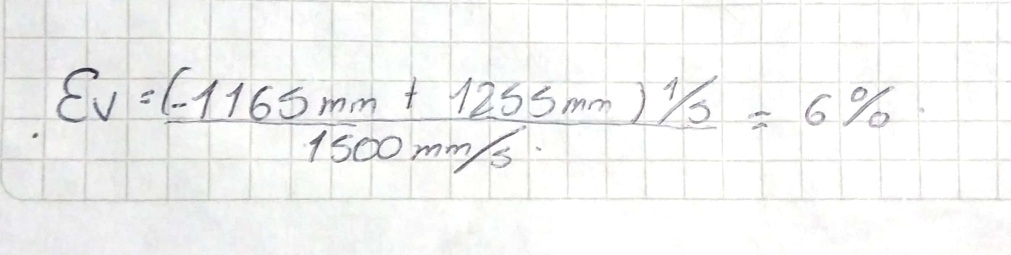 Ev = (-1165mm + 1255mm) 1/s = 6%
1500mm/s